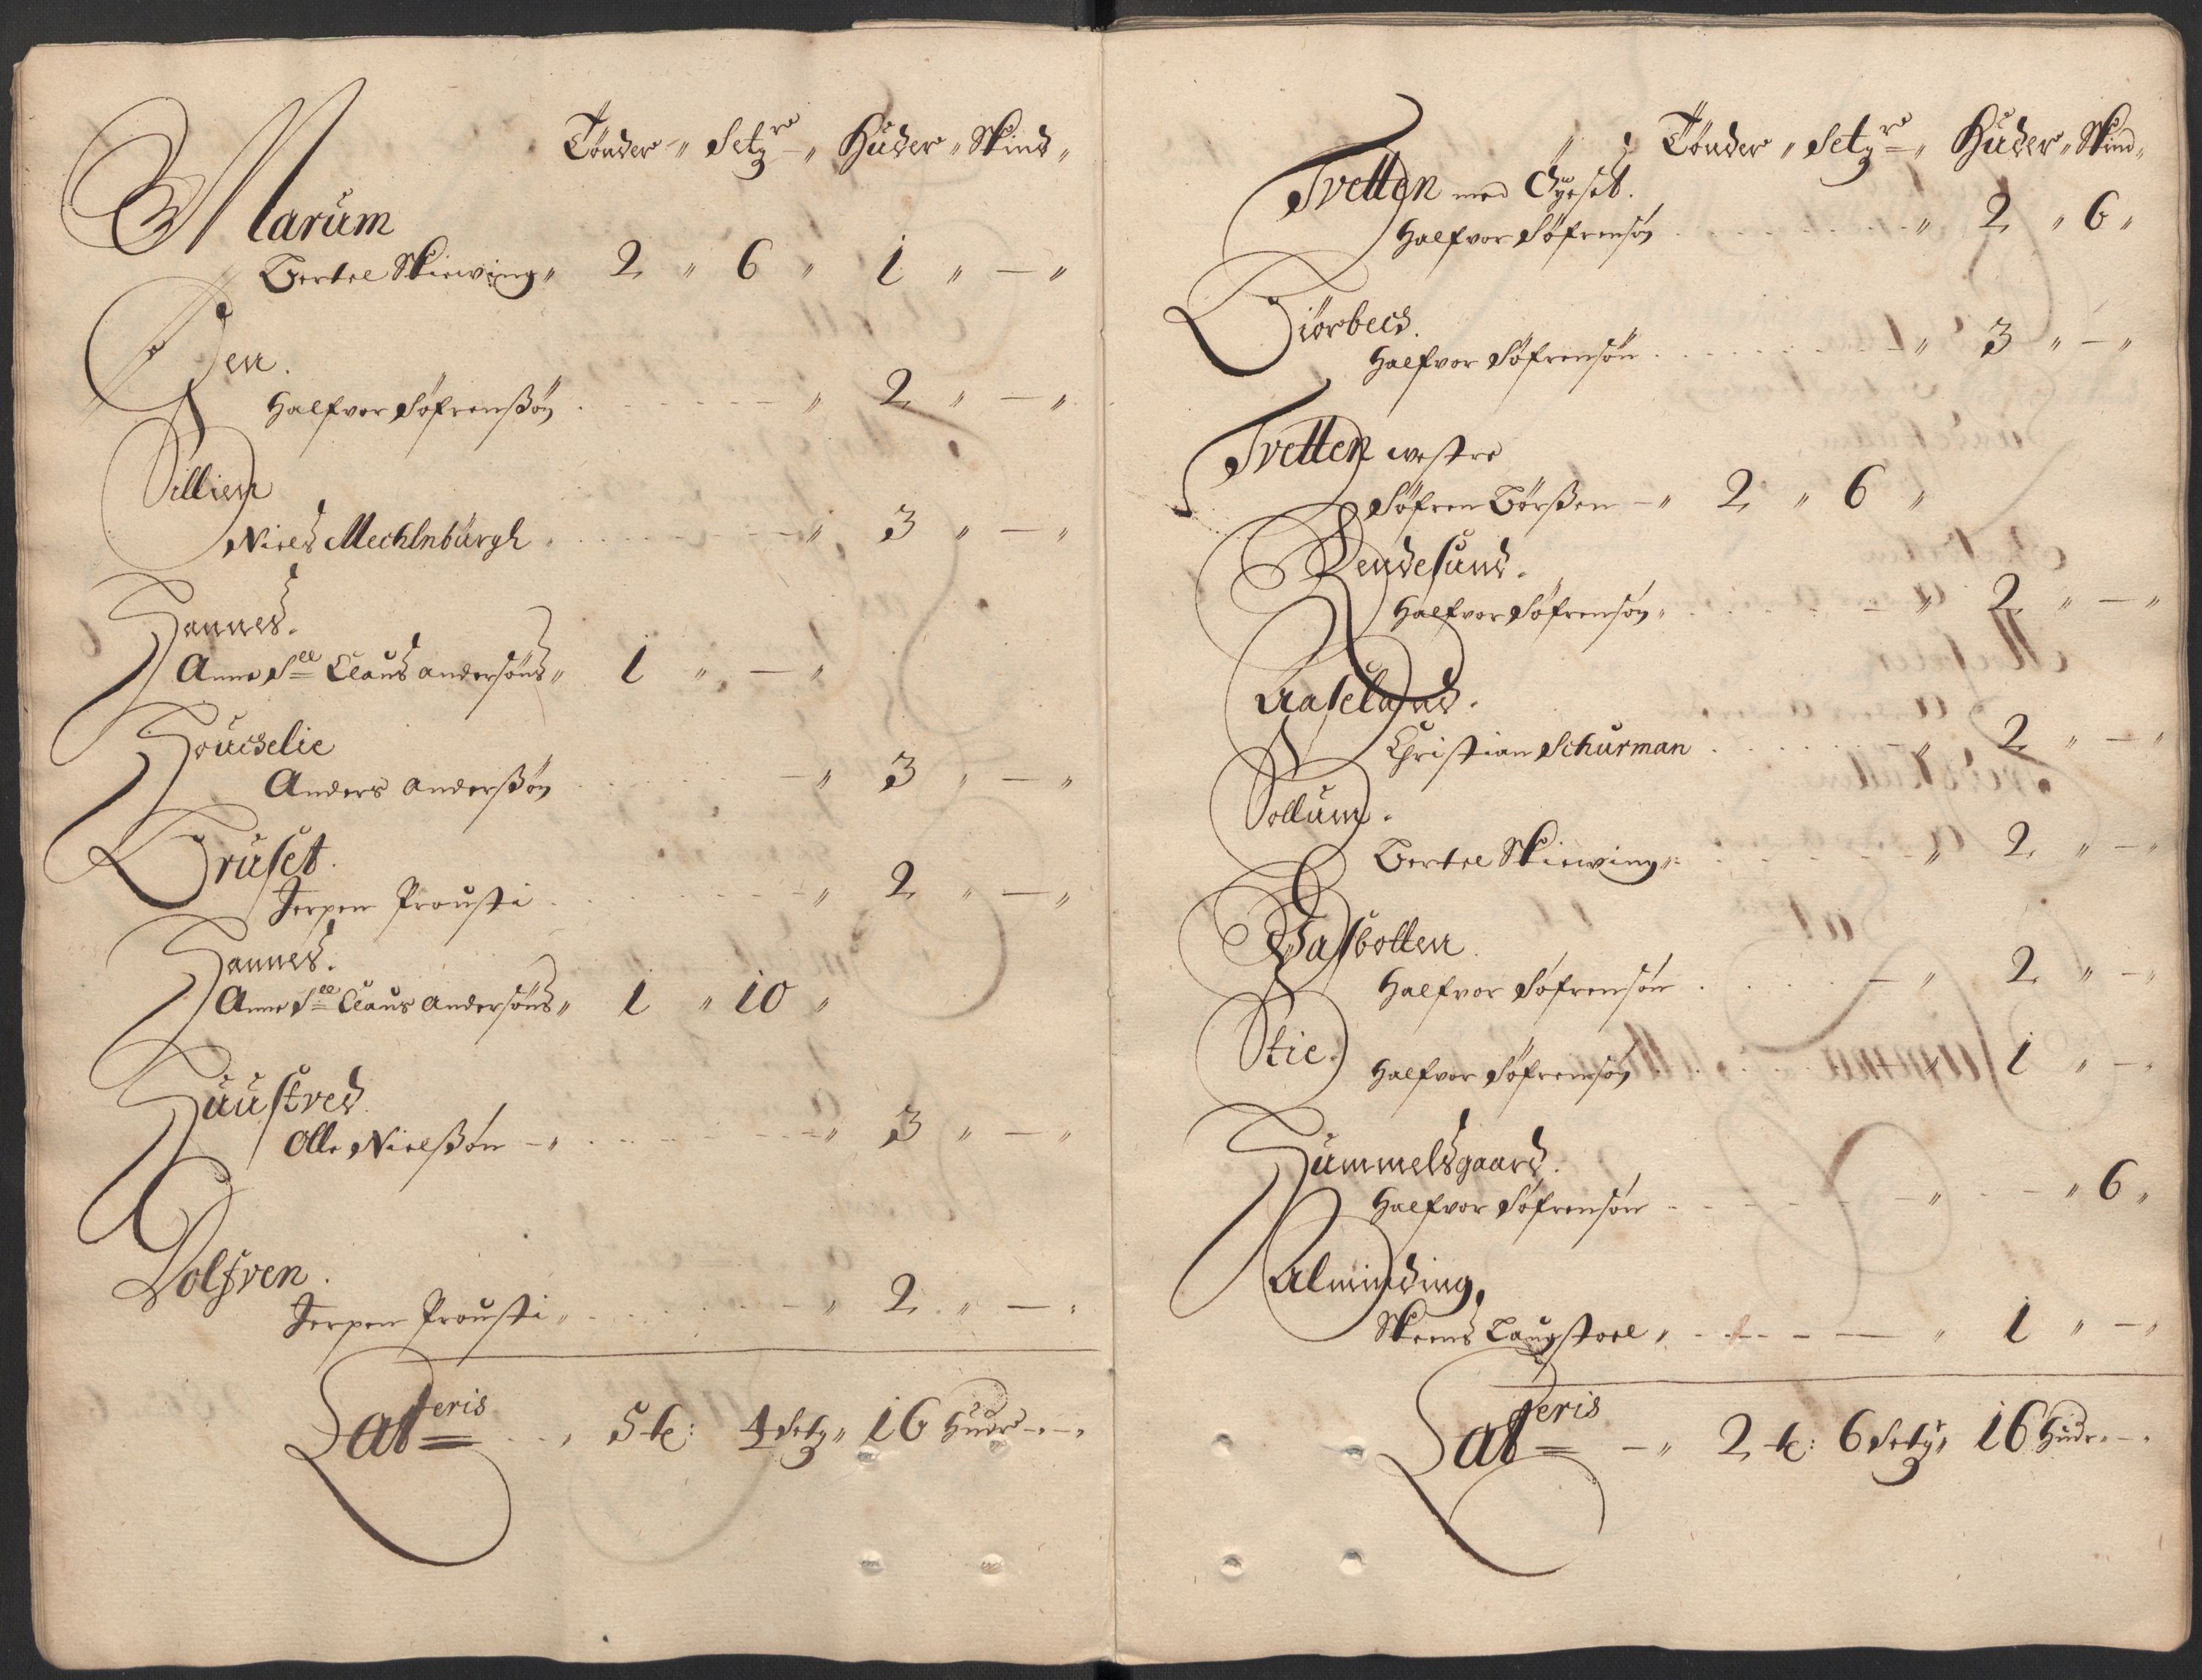 Tönder " Setg re " Huder " Skind "
Marum
Bertel Skiewing " 2 " 6 " 1 " — "
Jen.
Halfvor Søfrenßøn " 2 " — "
Sillien
Niels Mechlnburgh " 3 " — "
Hannes.
Anne Sl Claus andersøns " 1 " — "
Houckelie
Anders anderßøn — " 3 " — "
Bruset.
Jerpen Prousti " 2 " — "
Hannes.
Anne Sl Claus andersøns " 1 " 10 "
Huustved
Olle Nielßøn — " 3 " — "
Dolfven.
Jerpen Prousti " 2 " — "
Lat eris 5 t: 4 Setg " 16 Hudr — "
Tönder " Setg re " Huder " Skind "
Tvetten med
Halfvor Søfrensøn " 2 " 6 "
Biörbeck.
Halfvor Søfrensøn " 3 " — "
Tvetten westre
Søfren Börßen — " 2 " 6 "
Rendesund.
Halfvor Søfrensøn " 2 " — "
Aaseland.
Christian Schurman " 2 " — "
Sollum.
Bertel Skiewing " 2 " — "
Wasbotten
Halfvor Søfrensøn — " 2 " — "
Stie.
Halfvor Søfrensøn 1 " — "
Hummelsgaard.
Halfvor Søfrensøn " — " 6 "
Alminding,
Skeens Laugstoel " — " 1 " — "
Lat eris — " 2 t: 6 Setg " 16 Hudr — "